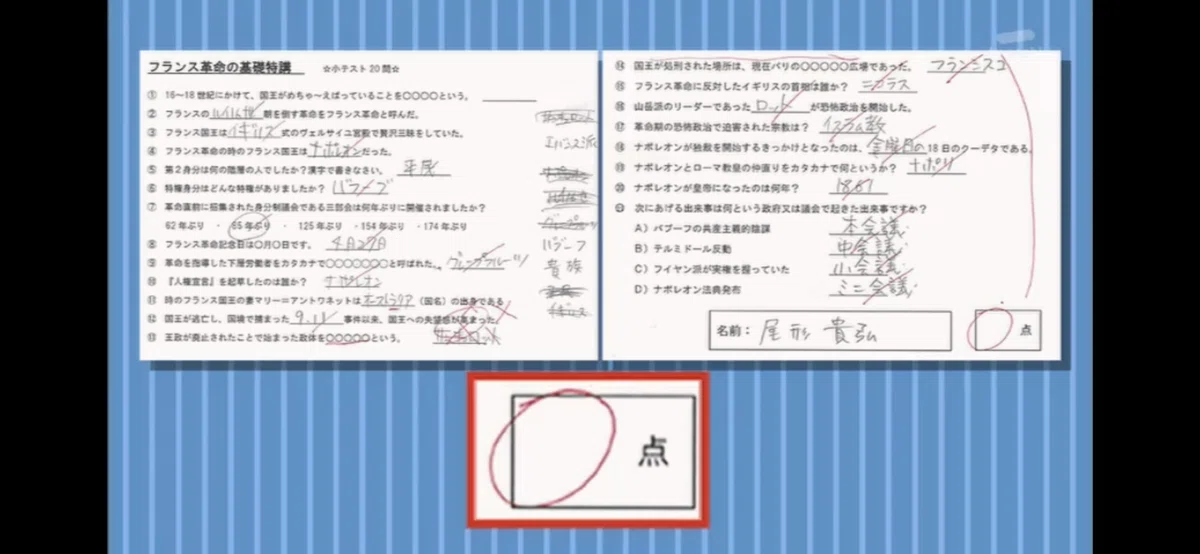 フランス革命の基礎特講 ☆小テスト20問☆
① 16〜18世紀にかけて、国王がめちゃ〜えばっていることを〇〇〇〇という。
② フランスの ルイ14世 朝を倒す革命をフランス革命と呼んだ。
③ フランス国王は イギリス 式のヴェルサイユ宮殿で贅沢三昧をしていた。
④ フランス革命の時のフランス国王は ナポレオン だった。
⑤ 第2身分は何の階層の人でしたか?漢字で書きなさい。 平民
⑥ 特権身分はどんな特権がありましたか?
⑦ 革命直前に招集された身分制議会である三部会は何年ぶりに開催されましたか?
62年ぶり ・ 85年ぶり ・ 125年ぶり ・154年ぶり ・174年ぶり
⑧ フランス革命記念日は〇月〇日です。 4月27日
⑨ 革命を指導した下層労働者をカタカナで〇〇〇〇〇〇〇と呼ばれた。 グレープフルーツ
⑩ 『人権宣言』を起草したのは誰か? ナポレオン
⑪ 時のフランス国王の妻マリー=アントワネットは オーストラリア (国名)の出身である
⑫ 国王が逃亡し、国境で捕まった 9.11 事件以来、国王への失望感が高まった。
⑬ 王政が廃止されたことで始まった政体を〇〇〇〇〇という。
エバンス派
バブーフ
貴族
イギリス
⑭ 国王が処刑された場所は、現在パリの〇〇〇〇〇広場であった。 フランシスコ
⑮ フランス革命に反対したイギリスの首相は誰か? ニコラス
⑯ 山岳派のリーダーであった ロット が恐怖政治を開始した。
⑰ 革命期の恐怖政治で迫害された宗教は? イスラム教
⑱ ナポレオンが独裁を開始するきっかけとなったのは、 金曜日の 18日のクーデタである。
⑲ ナポレオンとローマ教皇の仲直りをカタカナで何というか? ナポリ
⑳ ナポレオンが皇帝になったのは何年? 1861
㉑ 次にあげる出来事は何という政府又は議会で起きた出来事ですか?
A)バブーフの共産主義的陰謀 本会議
B)テルミドール反動 中会議
C)フイヤン派が実権を握っていた 小会議
D)ナポレオン法典発布 ミニ会議
名前: 尾形 貴弘
点
点